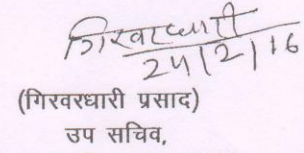 गिरवरधारी
24/2/16
(गिरवरधारी प्रसाद)
उप सचिव,